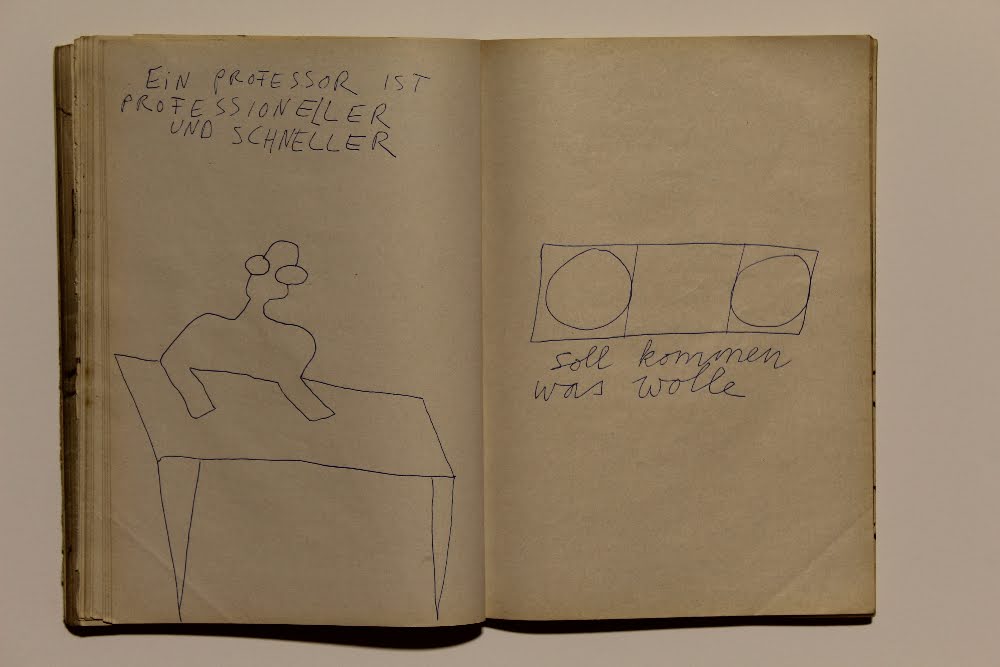 EiN PROFESSOR IST
PROFESSIONELLER
UND SCHNELLER
soll kommen
was wolle